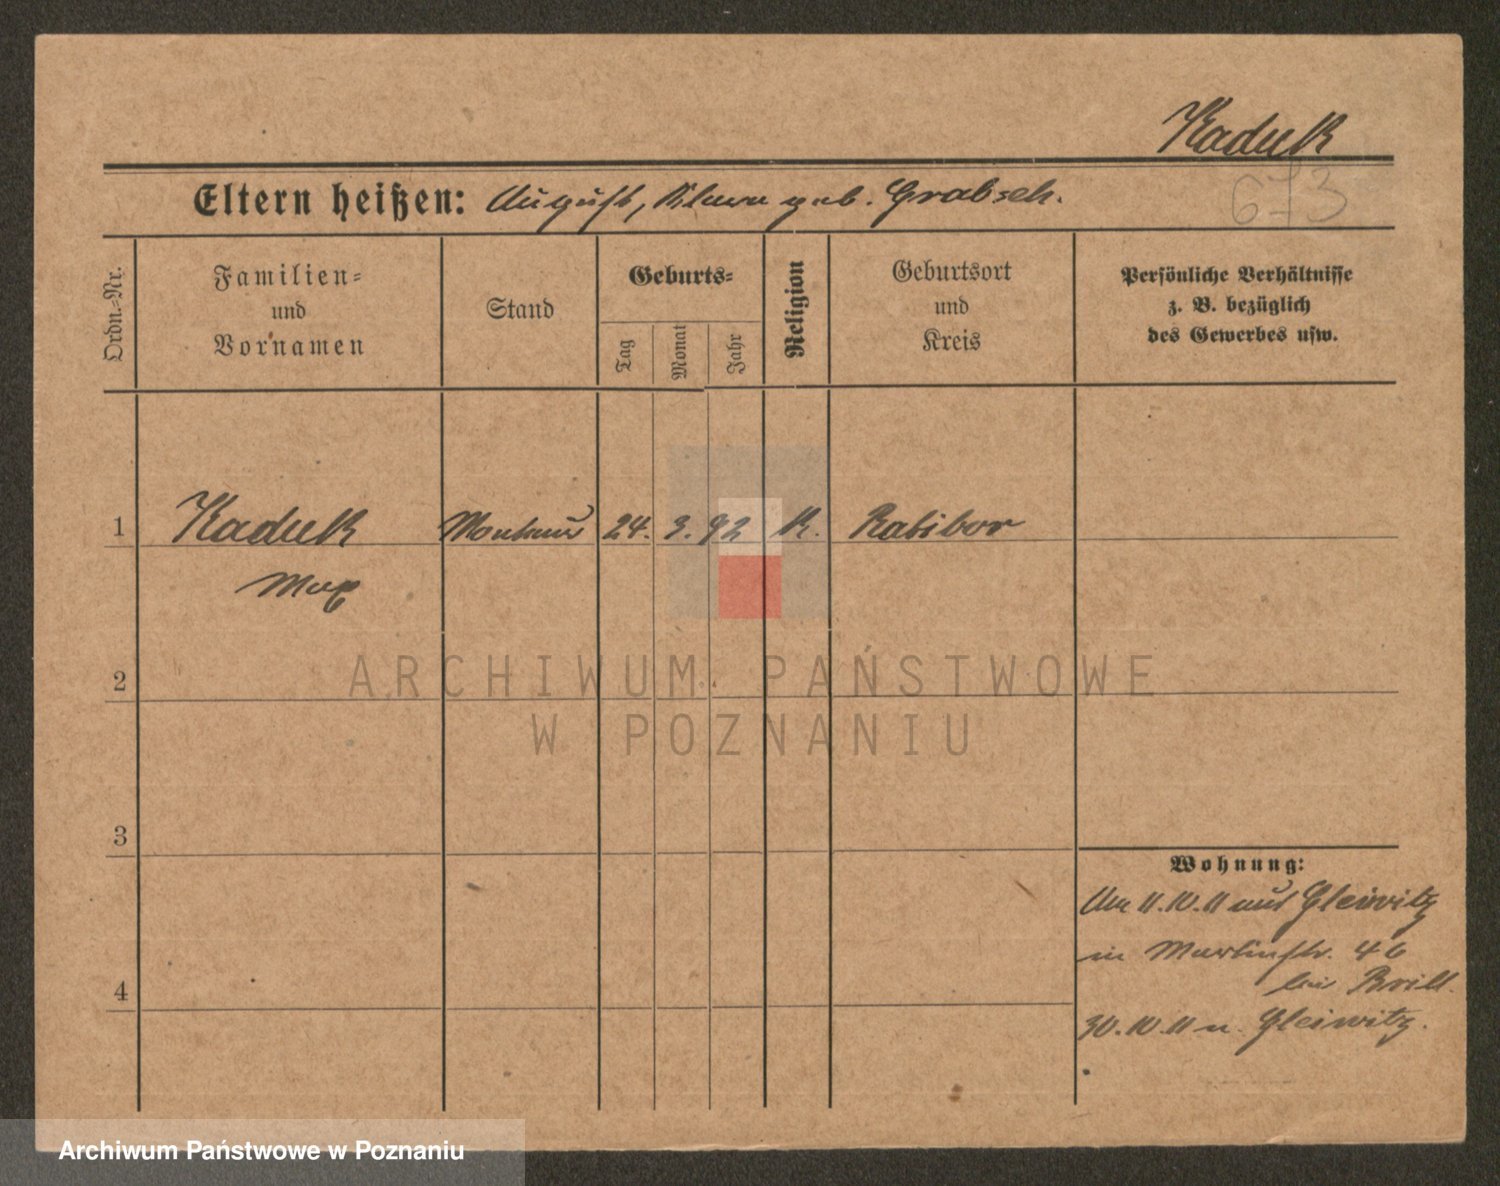 Kaduk
673
Eltern heißen: August, Klara geb. Grabsch.
Ordn.-Nr.
Familien-
und
Vornamen
Stand
Geburts-
Tag
Monat
Jahr
Religion
Geburtsort
und
Kreis
Persönliche Verhältnisse
z. B. bezüglich
des Gewerbes usw.
1 Kaduk Monteur 24. 3. 92 K. Ratibor
Max
2
3
4
Wohnung:
Am 11.10.11 aus Gleiwitz
in Martinstr. 46
bei Brill.
30.10.11 n. Gleiwitz.
ARCHIWUM PAŃSTWOWE
W POZNANIU
Archiwum Państwowe w Poznaniu